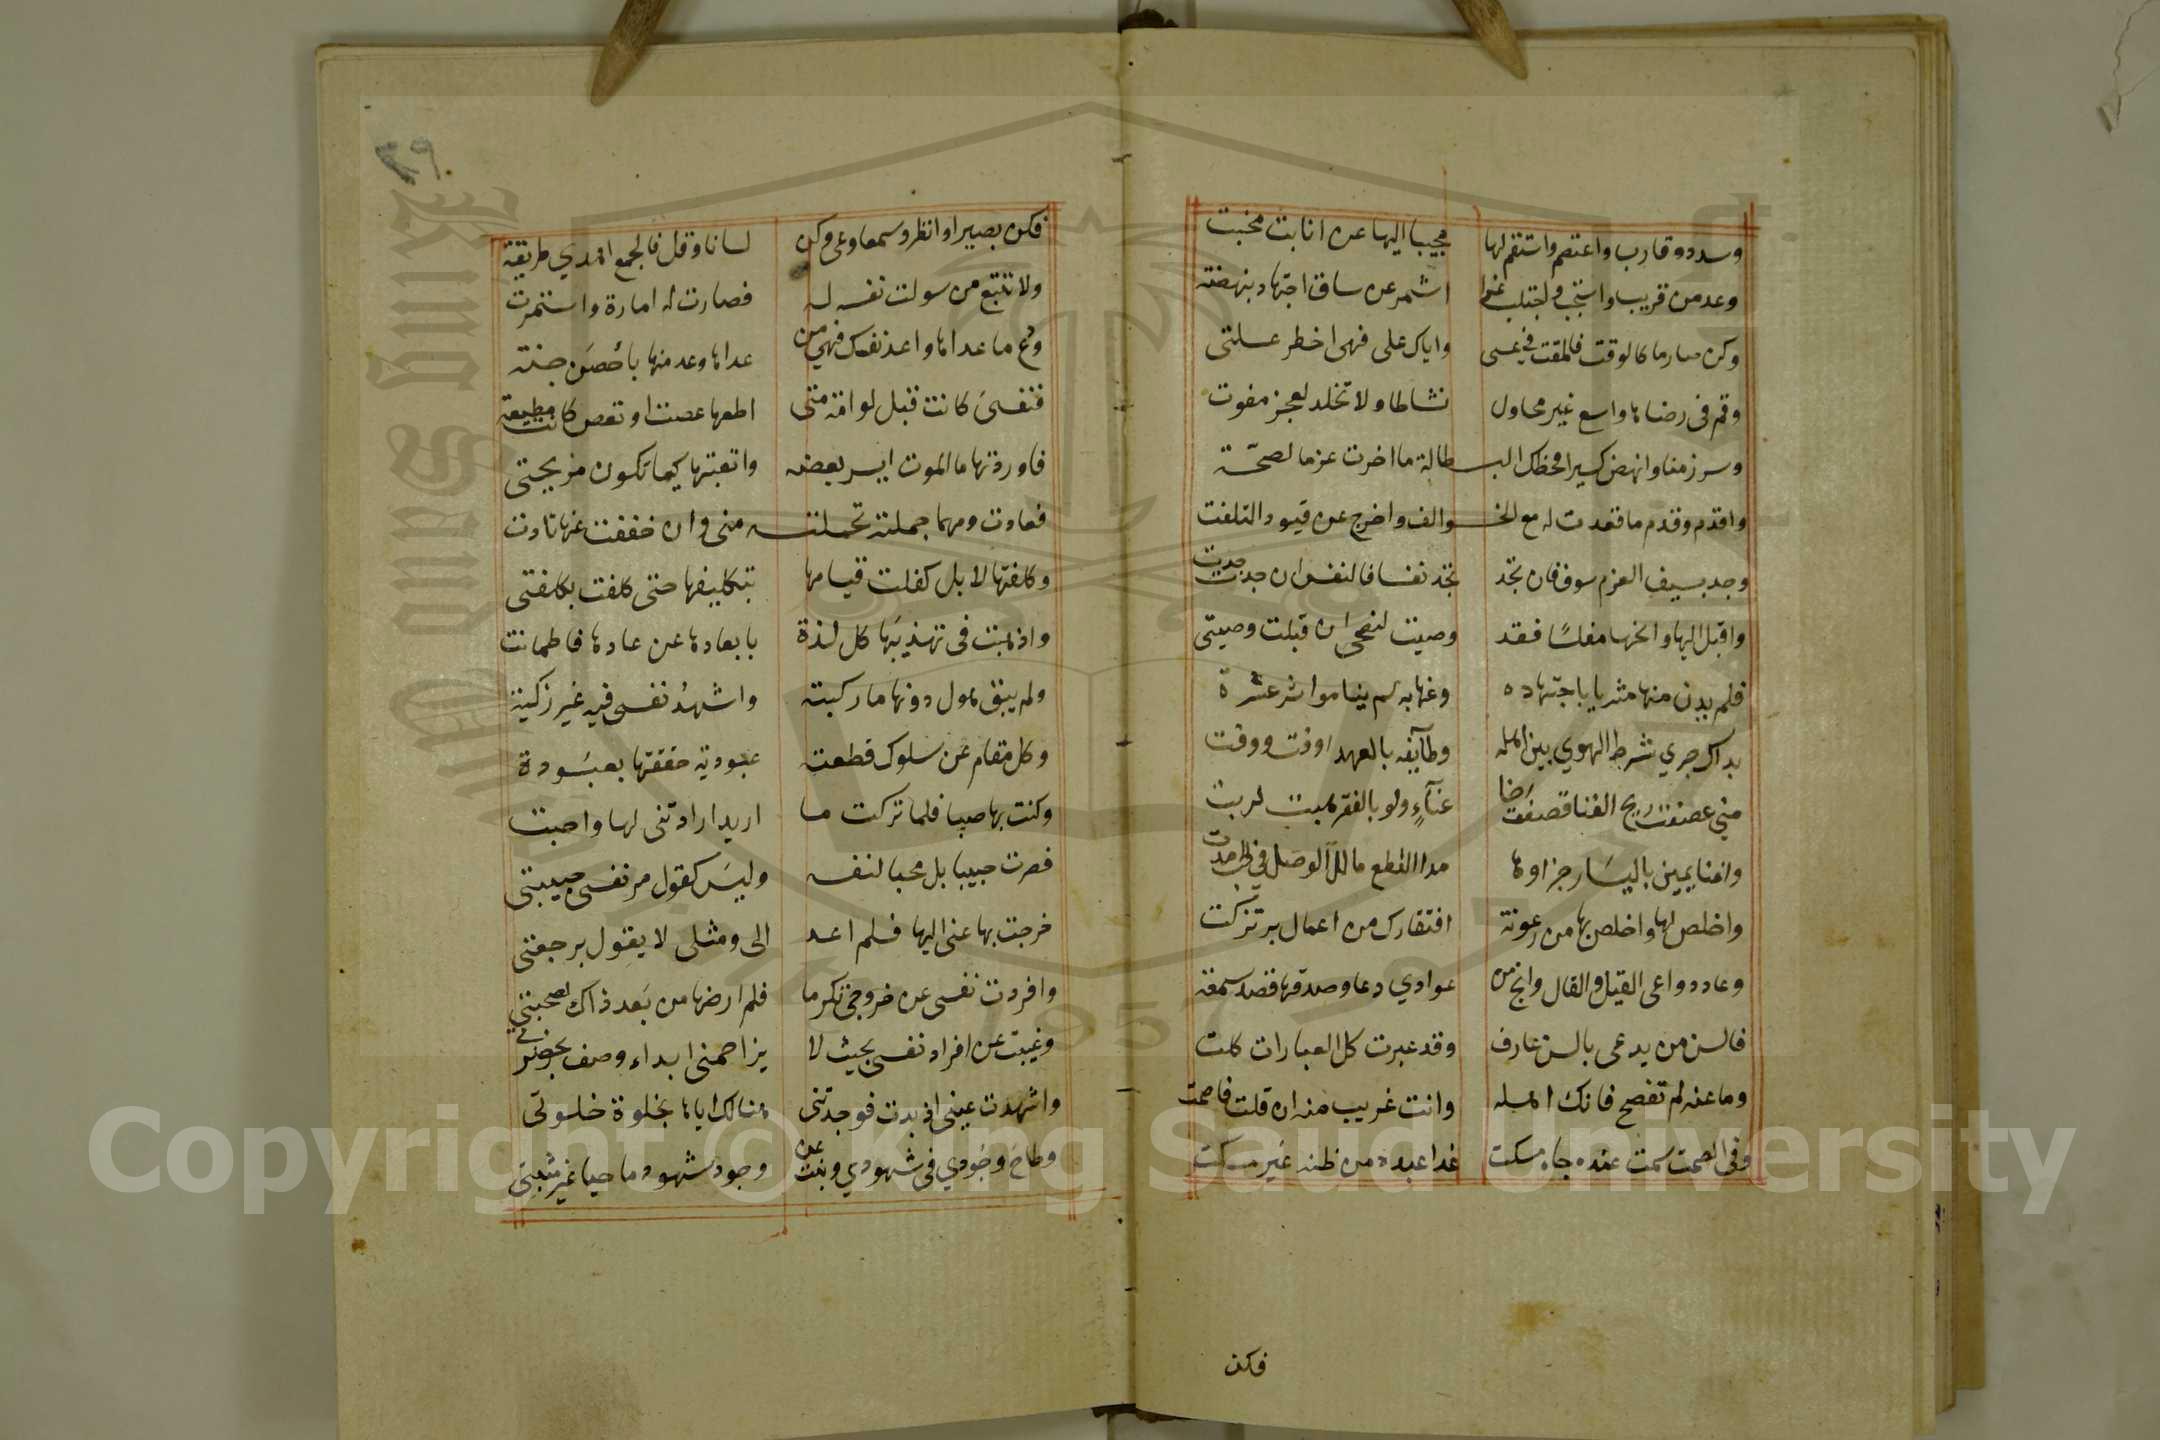 وسدد وقارب واعتصم واستقم لها مجيبا اليها عن انابت مخبت
وعد من قريب واستجب واجتنب غدا اشمر عن ساق اجتهاد بنهضة
وكن صارما كالوقت فالمقت في عسى واياك على فهى اخطر علتى
وقم فى رضاها واسع غير محاول نشاطا ولا تخلد لعجز مفوت
وسر زمنا وانهض كسيرا فحظك البطالة ما اخرت عزما لصحّة
واقدم وقدم ما قعدت له مع الخوالف واخرج عن قيود التلفت
وجد بسيف العزم سوف فان تجد تجد نفسا فالنفس ان جدت جدت
واقبل اليها وانحها مفلسًا فقد وصيت لنصحى ان قبلت وصيتى
فلم يدن منها مثريا باجتهاده وعنها به لم يناموا ثر عشرة
بداك جري شرط الهوي بين اهله وطآيفه بالعهد اوفت ووفت
متي عصفت ريح الفنا قصفت رضا عنآءٍ ولو بالفقر هبت لربت
واغنا يمين باليسار جزاوها مدا القطع ما للآ لوصل في الحب مدت
واخلص لها واخلص بها من رعونة افتقارك من اعمال بر تزكت
وعاد دواعى القيل والقال وانج من عوادي دعا وصدقها قصد سمعة
فالسن من يدعى بالسن عارف وقد عبرت كل العبارات كلت
وما عنه لم تفصح فانك اهله وانت غريب منه ان قلت فاصمت
وفى الصمت سمت عنده جاه مسكت غدا عبده من ظنه غير مسكت
فكن
٢٩
فكن بصيرا وانظر وسمعا وعى وكن لسانا وقل فالجمع اهدي طريقة
ولا تتبع من سولت نفسه له فصارت له امارة واستمرت
ودع ما عداها واعد نفسك فهى من عداها وعد منها باحصن جنة
فنفسى كانت قبل لوامة متى اطعها عصت او تعص كانت مطيعة
فاوردتها ما الموت ايسر بعضه واتعبتها كيما تكون مريحتى
فعادت ومهما حملته تحملته منى وان خففت عنها تاذت
وكلفتها لا بل كفلت قيامها بتكليفها حتى كلفت بكلفتى
واذهبت فى تهذيبها كل لذة بابعادها عن عادها فاطمانت
ولم يبق هول دونها ما ركبته واشهدُ نفسى فيه غير زكية
وكل مقام عن سلوك قطعته عبودية حققتها بعبودة
وكنت بها صبا فلما تركت ما اريد ارادتنى لها واحبت
فصرت حبيبا بل محبا لنفسه وليس كقول مر نفسى حبيبتى
خرجت بها عنى اليها فلم اعد الى ومثلى لا يقول برجعتى
وافردت نفسى عن خروجى تكرما فلم ارضها من بعد ذاك لصحبتي
وغيبت عن افراد نفسى بحيث لا يزاحمنى ابداء وصف بحضرتي
واشهدت عينى اذ بدت فوجدتنى هنالك اياها بخلوة خلوتى
وطاح وجودي فى شهودي وبنت عن وجود شهود ما حيا غير مثبتى